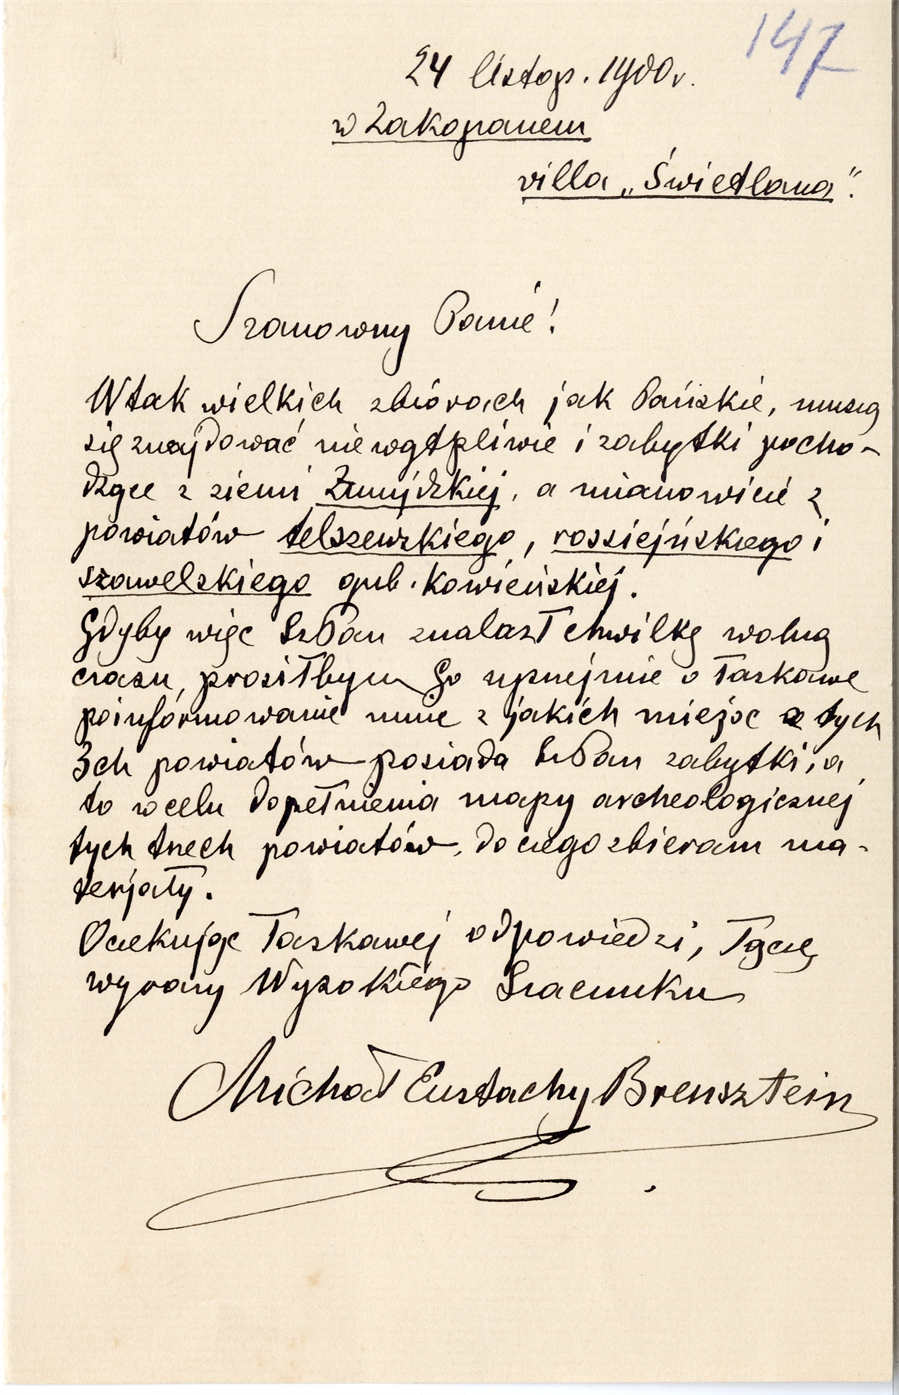 147
24 listop. 1900 r.
w Zakopanem
villa „Świetlana”.
Szanowny Panie!
W tak wielkich zbiorach jak Pańskie, muszą
się znajdować niewątpliwie i zabytki pocho-
dzące z ziemi Żmujdzkiej, a mianowicie z
powiatów telszewskiego, rossiejńskiego i
szawelskiego gub. kowieńskiej.
Gdyby więc Sz Pan znalazł chwilkę wolną
czasu, prosiłbym Go uprzejmie o łaskawe
poinformowanie mnie z jakich miejsc z tych
3ch powiatów posiada Sz Pan zabytki, a
to w celu dopełnienia mapy archeologicznej
tych trzech powiatów, do czego zbieram ma-
terjały.
Oczekując łaskawej odpowiedzi, łączę
wyrazy Wysokiego Szacunku
Michał Eustachy Brensztein